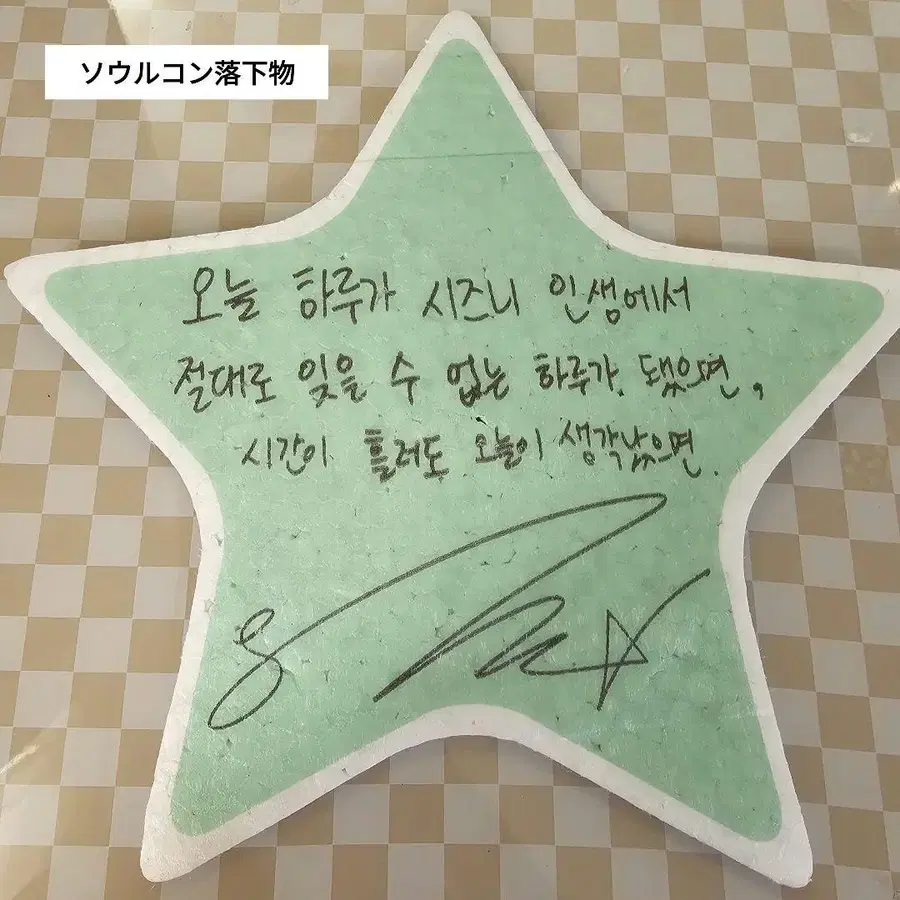 ソウルコン落下物
오늘 하루가 시즈니 인생에서
절대로 잊을 수 없는 하루가 됐으면,
시간이 흘러도 오늘이 생각났으면.